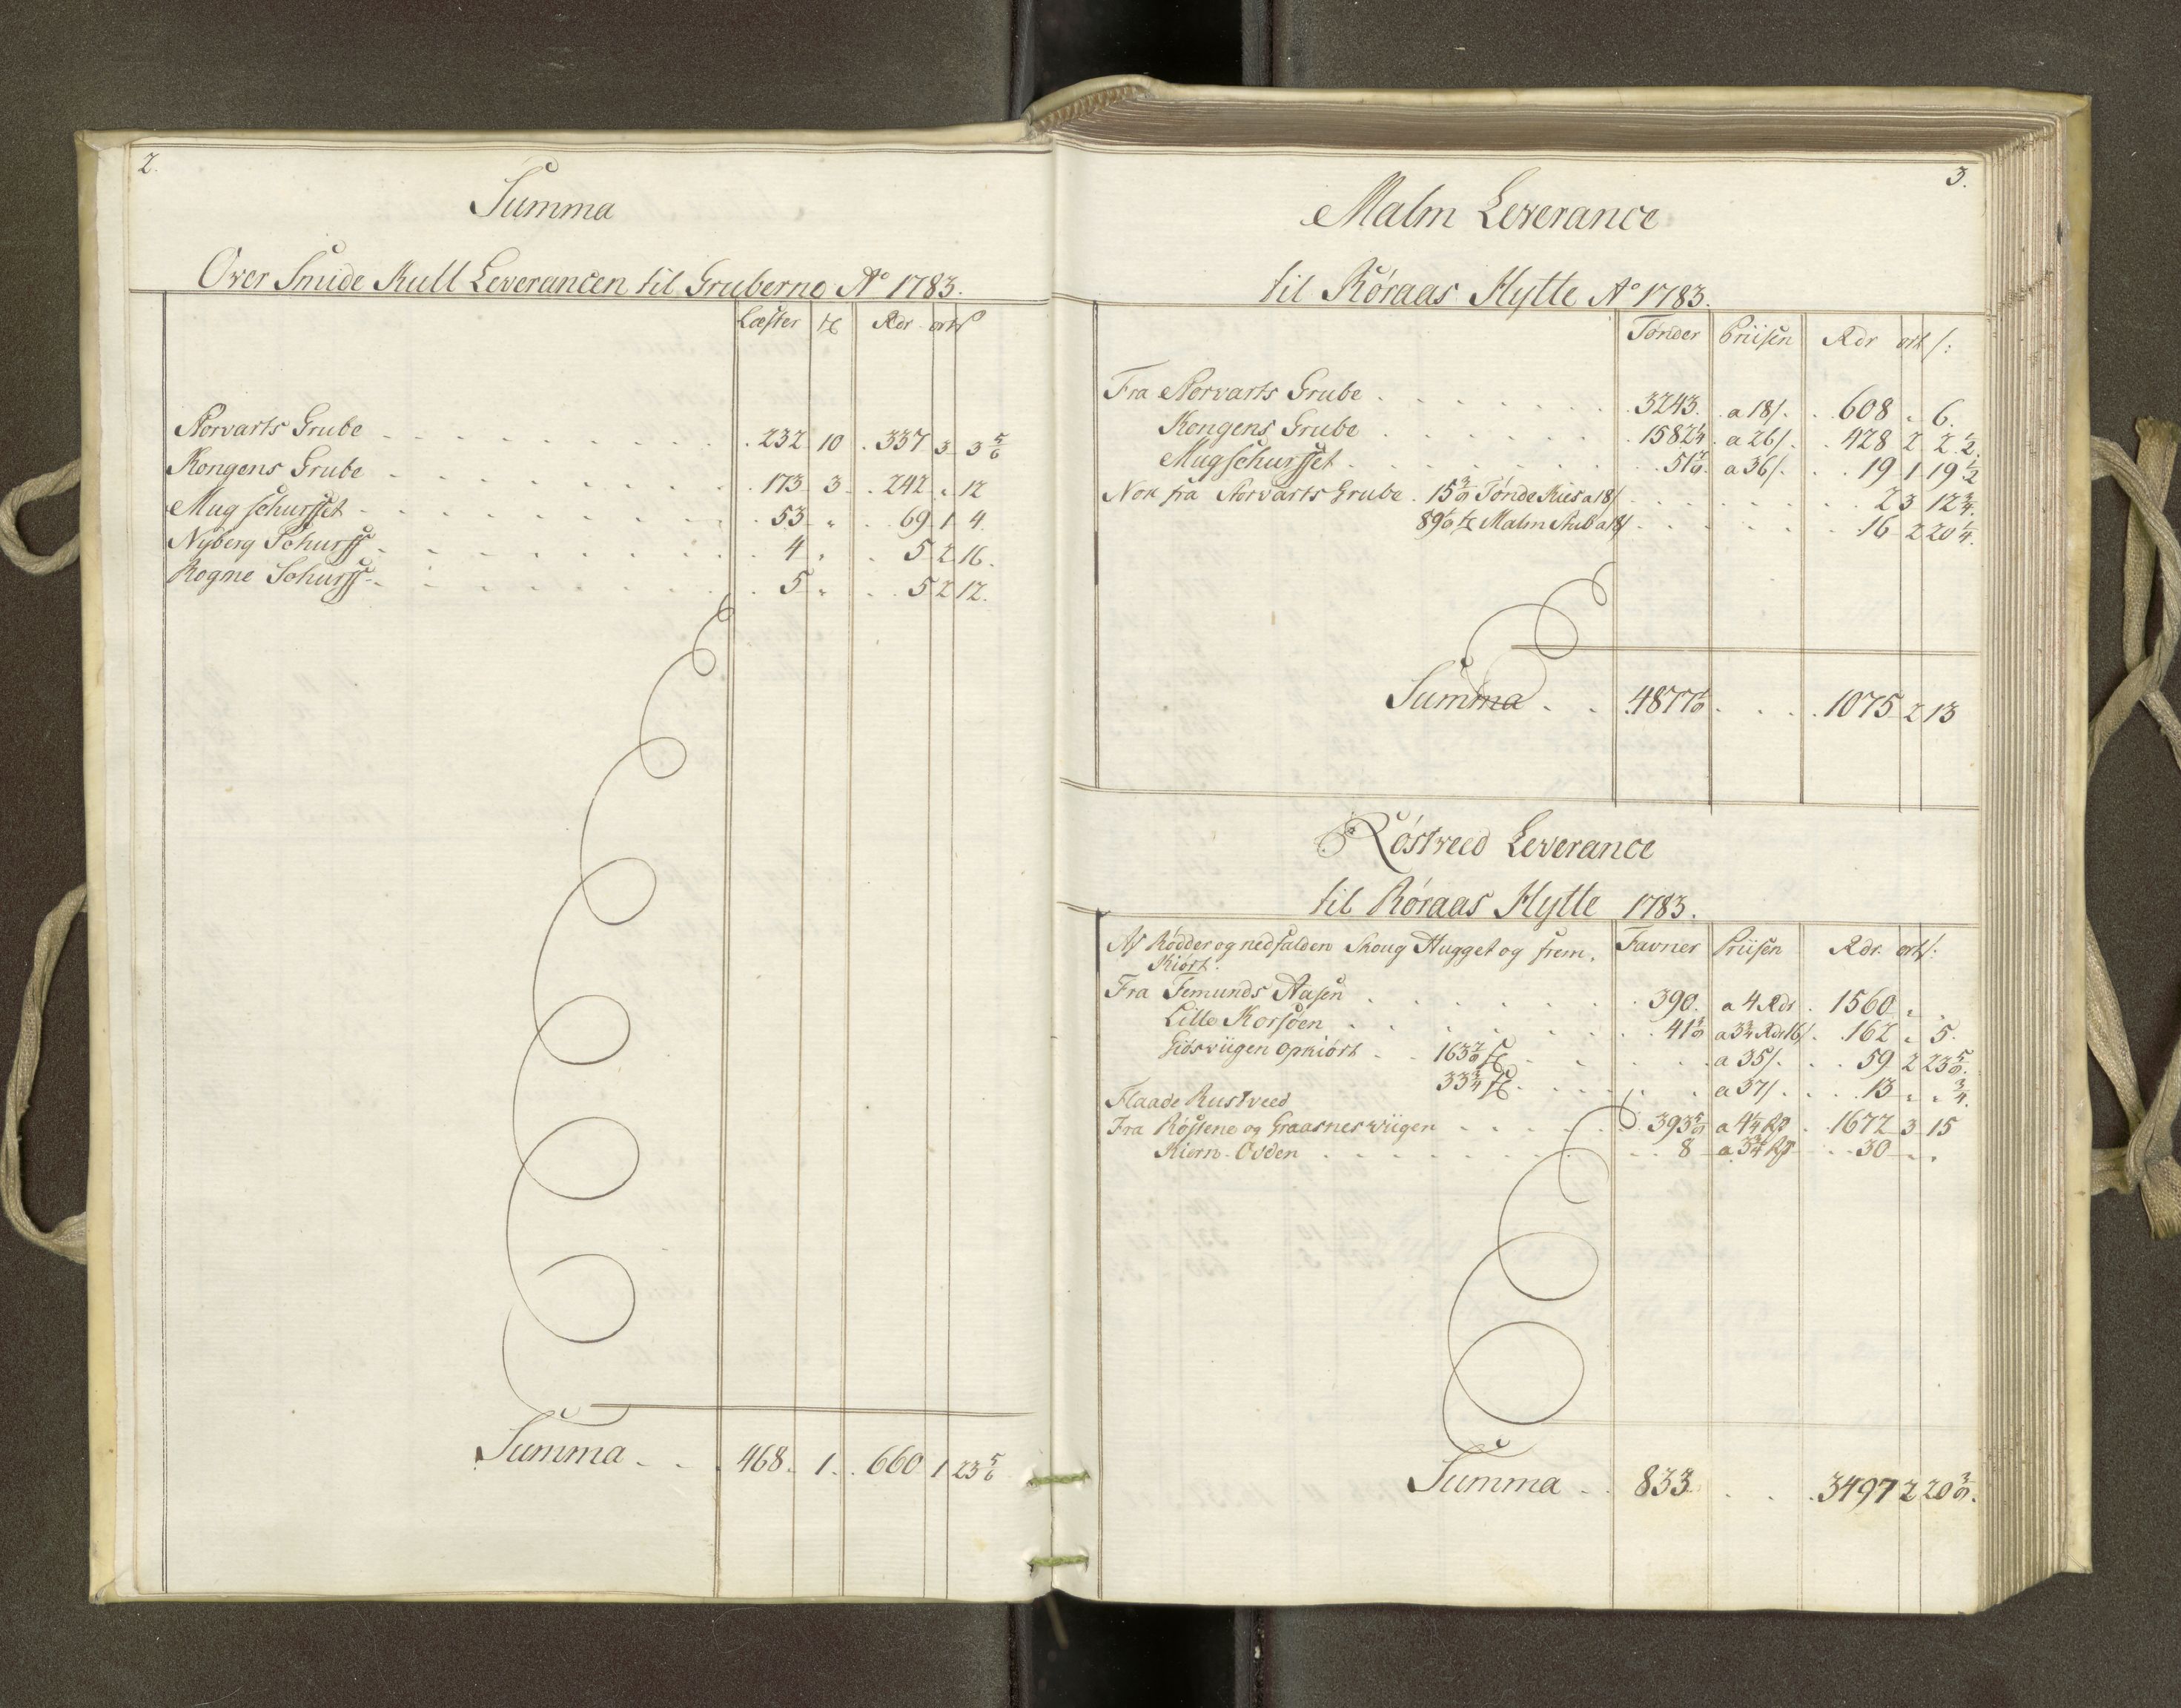 2.
Summa
Over Smide Kull Leverancen til Gruberne Aº 1783.
Læster Rdr ort
Storvarts Grube 232 10 337 3 3 5/6
Kongens Grube 173 3 242 " 12
Mugschurffet 53 " 69 1 4
Nyberg Schurff 4 " 5 2 16.
Rogne Schurff 5 " 5 2 12.
Summa 468. 1. 660 1 23 5/6
3.
Malm Leverance
til Röraas Hytte Aº 1783.
Tønder Priisen Rdr ort ſ:
Fra Storvarts Grube 3243. a 18 ſ. 608 " 6.
Kongens Grube 1582 1/4 a 26 ſ. 428 2 2 1/2.
Mugschurffet 51 a 36 ſ. 19 1 19 1/2
Nok fra Storvarts Grube 15 Tønde Kies a 18 ſ 2 3 12 3/4.
89 Malm Stub a 18 ſ 16 2 20 1/4.
Summa 4877 1075 2 13
Röstveed Leverance
til Röraas Hytte 1783.
Af Rödder og nedfalden Skoug Hugget og frem, Favner Priisen Rdr. ort ſ:
Kiört.
Fra Femunds Aasen 390. a 4 Rdr 1560 "
Lille Korsöen 41 a 3 3/4 Rdr 16 ſ 162 " 5.
opkiört 163 a 35 ſ. 59 2 23
33 3/4 a 37 ſ. 13 " " 3/4.
Flaade Rustveed
Fra Röstene og Graasnesviigen 393 a 4 1/4 Rd 1672 3 15
Kiern-Ovden 8 a 3 3/4 Rd 30 " "
Summa 833 3497 2 20